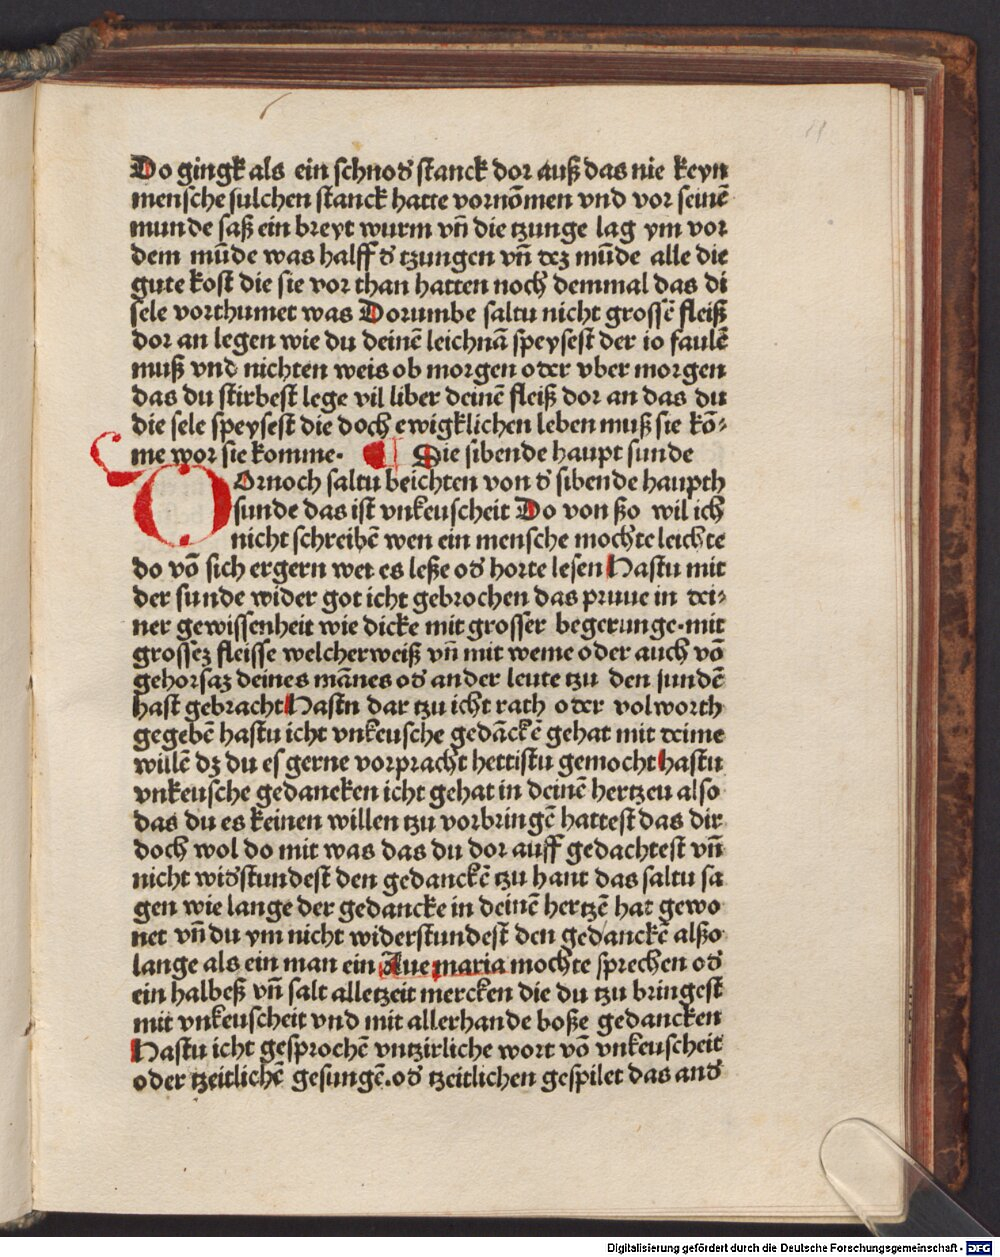 11
Do gingk als ein schnod̕ stanck dor auß das nie keyn
mensche sulchen stanck hatte vornōmen vnd vor seinē
munde saß ein breyt wurm vn̄ die tzunge lag ym vor
dem mūde was halff d̕ tzungen vn̄ dez mūde alle die
gute kost die sie vor than hatten noch demmal das di
sele vorthumet was Dorumbe saltu nicht grossē fleiß
dor an legen wie du deinē leichnā speysest der io faulē
muß vnd nichten weis ob morgen oder vber morgen
das du stirbest lege vil liber deinē fleiß dor an das du
die sele speysest die doch ewigklichen leben muß sie kō⸗
me wor sie komme· Die sibende haupt sunde
Dornoch saltu beichten von d̕ sibende haupth
sunde das ist vnkeuscheit Do von ßo wil ich
nicht schreibē wen ein mensche mochte leichte
do vō sich ergern wer es leße od̕ horte lesen Hastu mit
der sunde wider got icht gebrochen das pruue in dei⸗
ner gewissenheit wie dicke mit grosser begerunge·mit
grossez fleisse welcherweiß vn̄ mit weme oder auch vō
gehorsaz deines mānes od̕ ander leute tzu den sundē
hast gebracht Hastn dar tzu icht rath oder volworth
gegebē hastu icht vnkeusche gedāckē gehat mit deime
willē dz du es gerne vorpracht hettistu gemocht hastu
vnkeusche gedancken icht gehat in deinē hertzeu also
das du es keinen willen tzu vorbringē hattest das dir
doch wol do mit was das du dor auff gedachtest vn̄
nicht wid̕stundest den gedanckē tzu hant das saltu sa
gen wie lange der gedancke in deinē hertzē hat gewo
net vn̄ du ym nicht widerstundest den gedanckē alßo
lange als ein man ein Aue maria mochte sprechen od̕
ein halbeß vn̄ salt alletzeit mercken die du tzu bringest
mit vnkeuscheit vnd mit allerhande boße gedancken
Hastu icht gesprochē vntzirliche wort vō vnkeuscheit
oder tzeitlichē gesungē.od̕ tzeitlichen gespilet das and̕
Digitalisierung gefördert durch die Deutsche Forschungsgemeinschaft - DFG